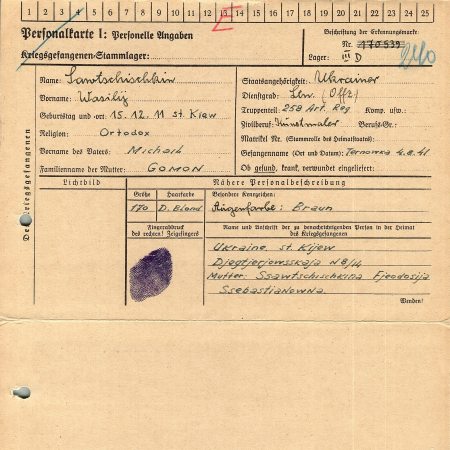 1 2 3 4 5 6 7 8 9 10 11 12 13 14 15 16 17 18 19 20 21 22 23 24 25
E
Personalkarte I: Personelle Angaben
Kriegsgefangenen-Stammlager:
Beschriftung der Erkennungsmarke:
Nr. 170539
Lager: III D
Des Kriegsgefangenen
Name: Sawtschischkin
Vorname: Wasilij
Geburtstag und -ort: 15.12.11 st. Kiew
Religion: Ortodox
Vorname des Vaters: Michail
Familienname der Mutter: GOMON
Staatsangehörigkeit: Ukrainer
Dienstgrad: Ltn. (Offz)
Truppenteil: 258 Art. Reg Komp. usw.:
Zivilberuf: Kunstmaler Berufs-Gr.:
Matrikel Nr. (Stammrolle des Heimatstaates):
Gefangennahme (Ort und Datum): Ternowka 4.8.41
Ob gesund, krank, verwundet eingeliefert:
Lichtbild
Nähere Personalbeschreibung
Größe
Haarfarbe
Besondere Kennzeichen:
170
D. Blond
Augenfarbe: Braun
Fingerabdruck
des rechten! Zeigefingers
Name und Anschrift der zu benachrichtigenden Person in der Heimat
des Kriegsgefangenen
Ukraine st. Kijew
Djegtjerjowskaja N 8/4
Mutter: Ssawtschischkina Fjeodosija
Ssebastianowna.
Wenden!